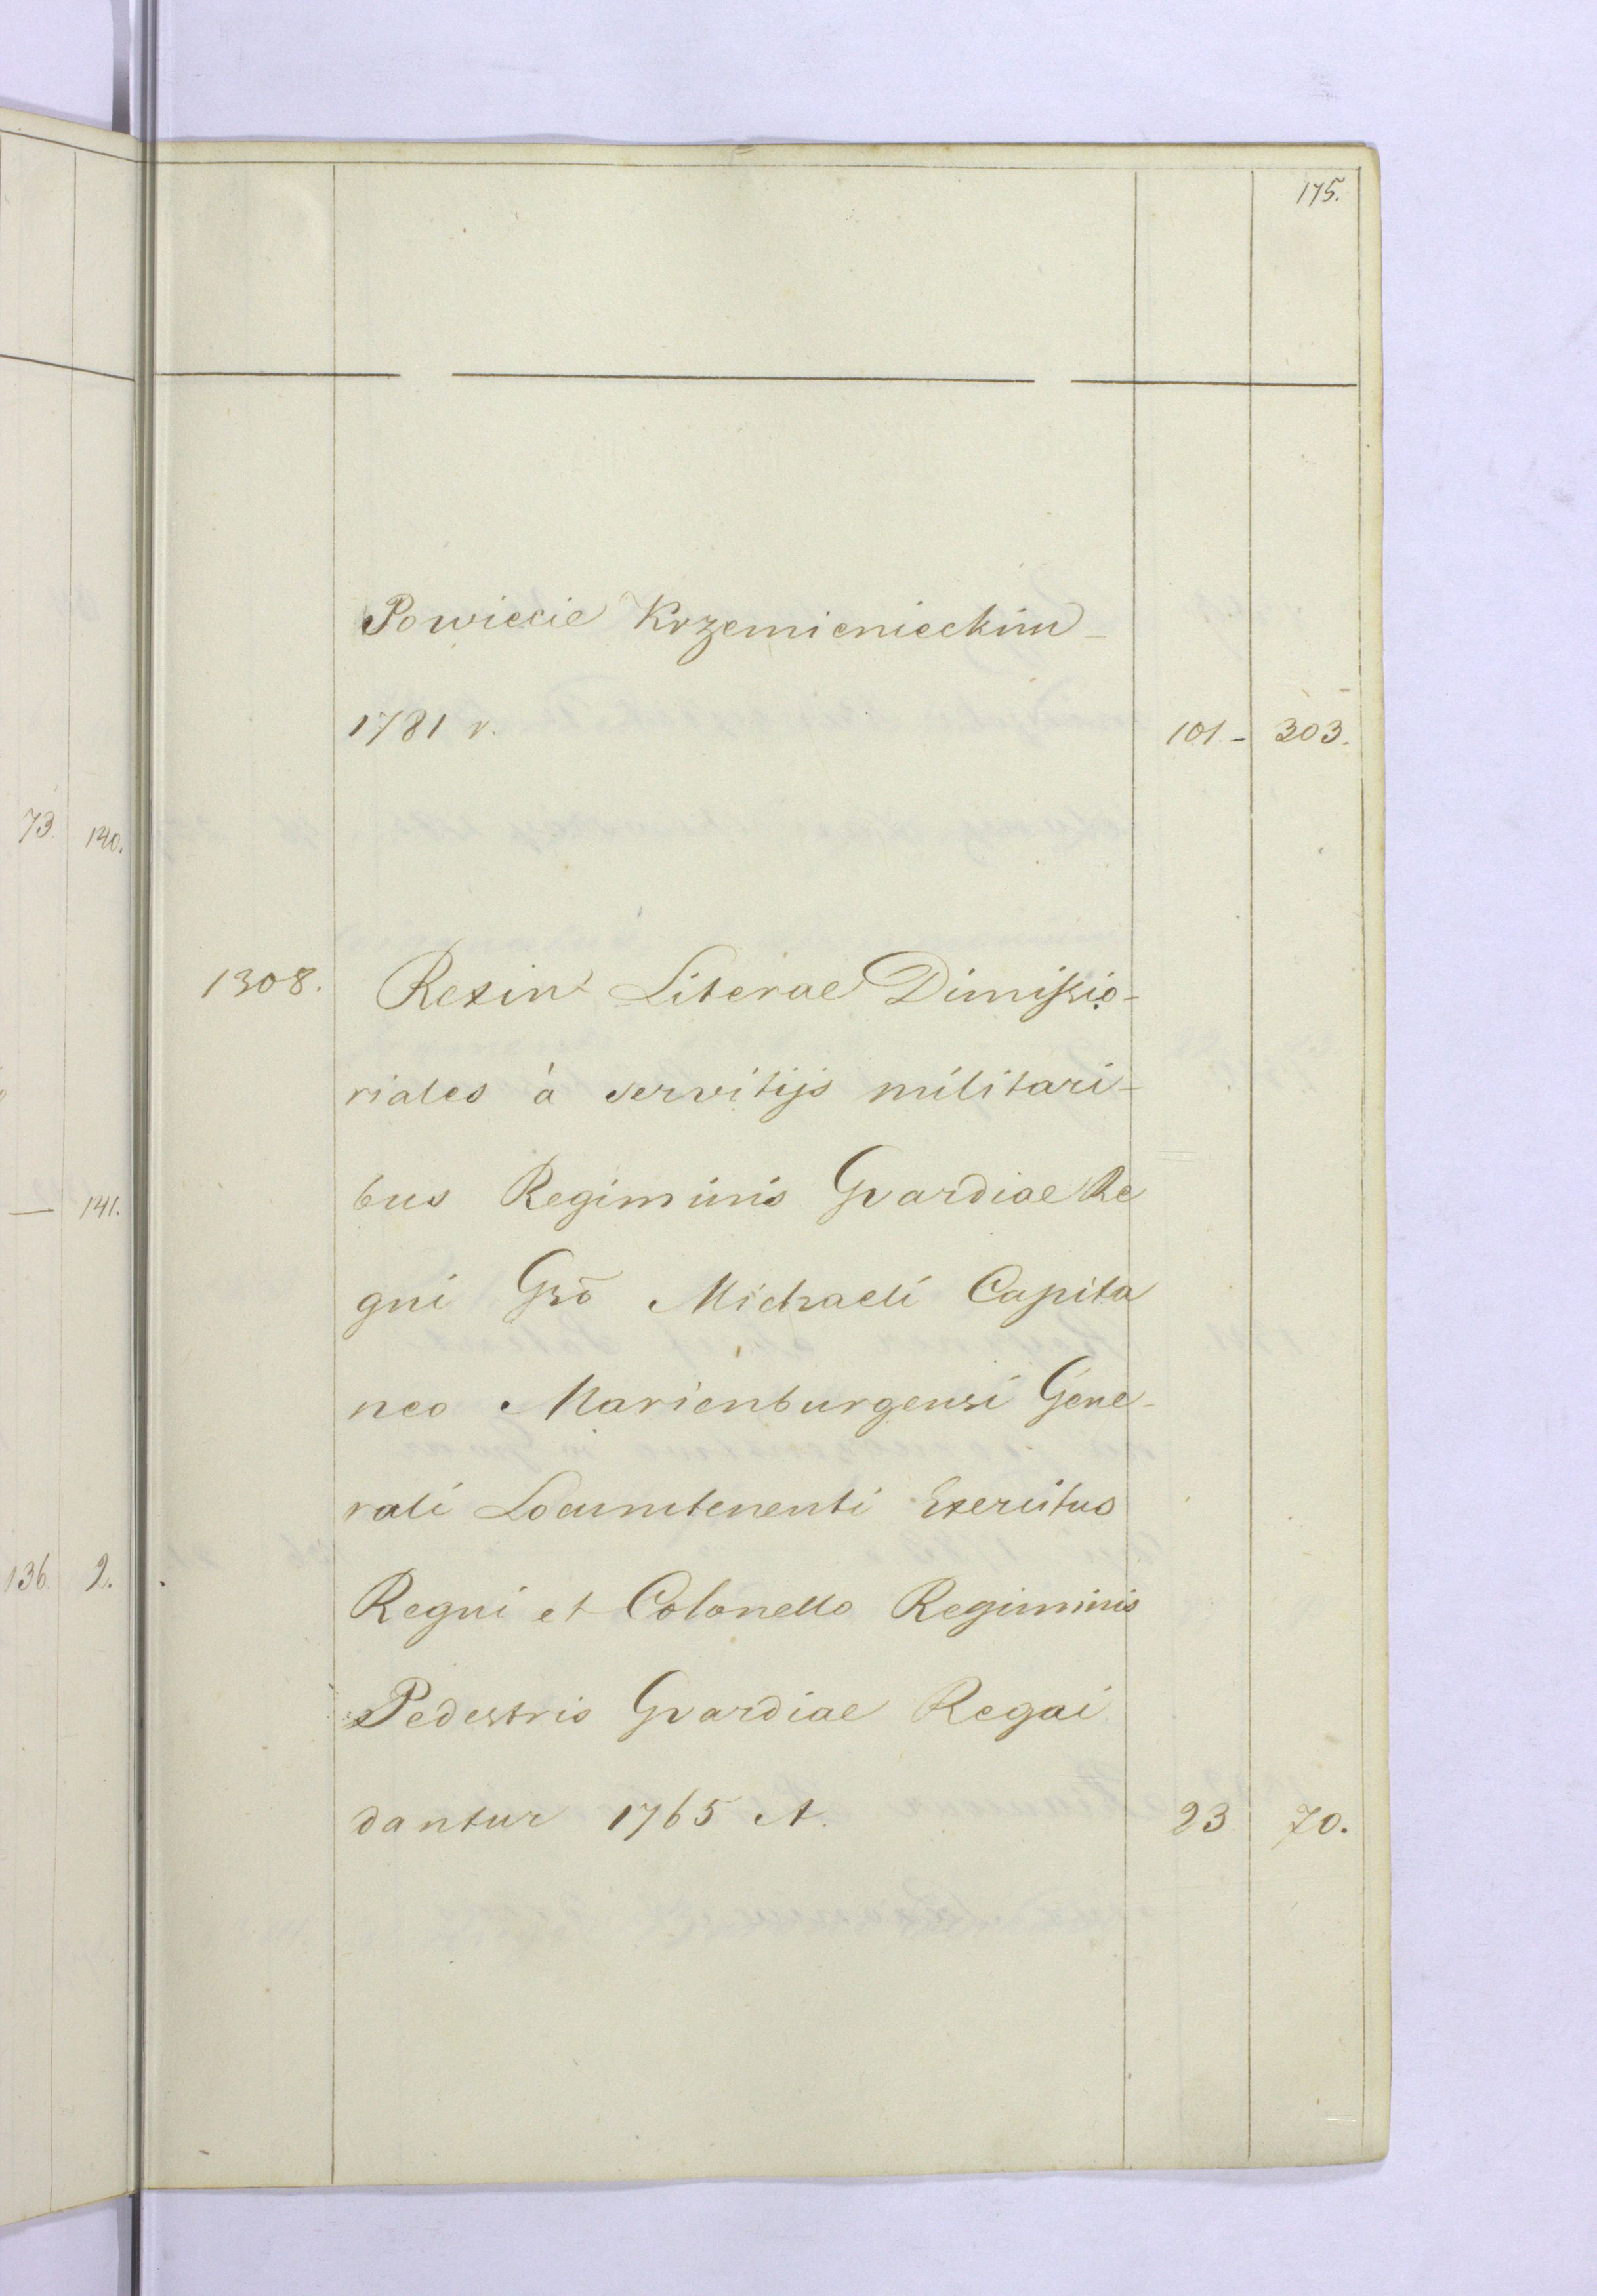 175.
Powiecie Krzemienieckim
1781 r. 101. - 303.
73. 140.
1308. Rexin Literae Dimissio-
riales à servitijs militari-
bus Regiminis Gvardiae Re
— 141.
gni Gsō Michaeli Capita
neo Marienburgensi Gene-
rali Locumtenenti Exercitus
136. 2.
Regni et Colonello Regiminis
Pedestris Gvardiae Regni
dantur 1765 A. 23. 70.